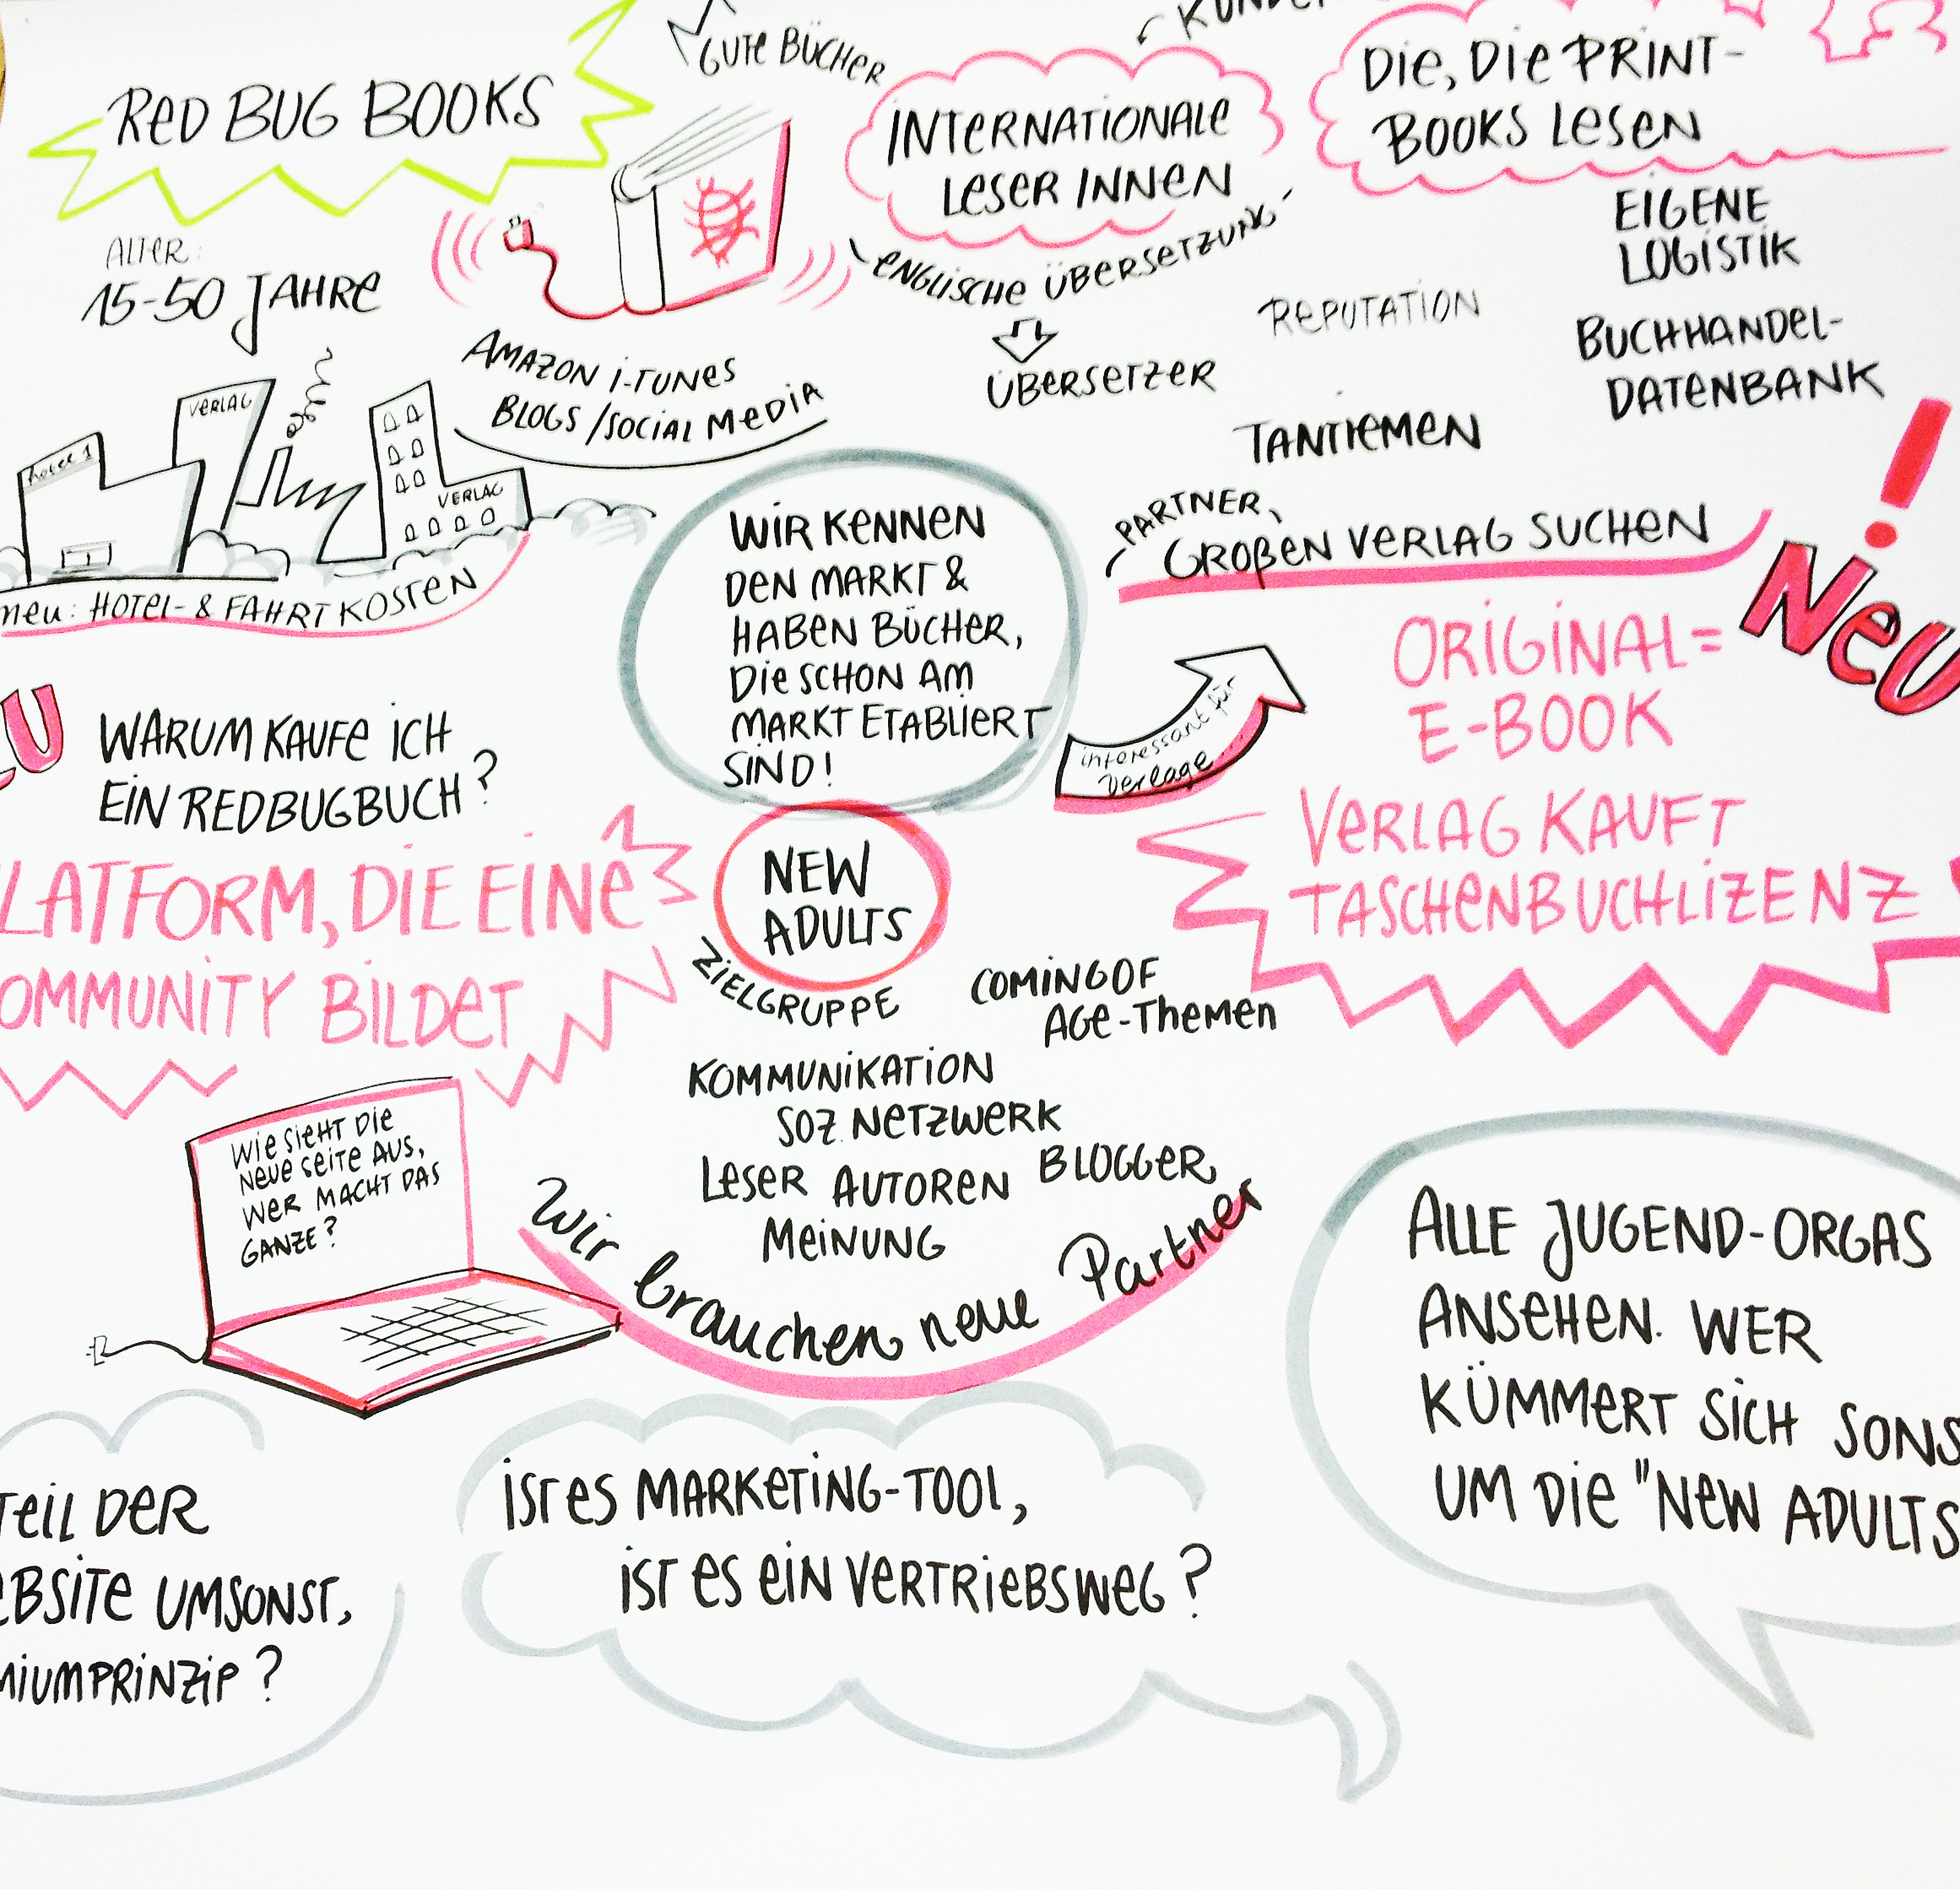 RED BUG BOOKS
GUTE BÜCHER
INTERNATIONALE
LESER INNEN
DIE, DIE PRINT-
BOOKS LESEN
ALTER:
15-50 JAHRE
ENGLISCHE ÜBERSETZUNG
ÜBERSETZER
EIGENE
LOGISTIK
REPUTATION
BUCHHANDEL-
DATENBANK
TANTIEMEN
AMAZON I-TUNES
BLOGS/SOCIAL MEDIA
VERLAG
VERLAG
neu: HOTEL- & FAHRTKOSTEN
WIR KENNEN
DEN MARKT &
HABEN BÜCHER,
DIE SCHON AM
MARKT ETABLIERT
SIND!
PARTNER,
GROßEN VERLAG SUCHEN
NEU!
interessant für
Verlage
ORIGINAL=
E-BOOK
VERLAG KAUFT
TASCHENBUCHLIZENZ
WARUM KAUFE ICH
EIN REDBUGBUCH?
LATFORM, DIE EINE
OMMUNITY BILDET
NEW
ADULTS
ZIELGRUPPE
COMING OF
AGE-THEMEN
KOMMUNIKATION
SOZ. NETZWERK
LESER AUTOREN BLOGGER
MEINUNG
Wir brauchen neue Partner
WIE SIEHT DIE
NEUE SEITE AUS,
WER MACHT DAS
GANZE?
ALLE JUGEND-ORGAS
ANSEHEN. WER
KÜMMERT SICH SONS
UM DIE "NEW ADULTS
TEIL DER
EBSITE UMSONST,
MIUMPRINZIP?
IST ES MARKETING-TOOL,
IST ES EIN VERTRIEBSWEG?